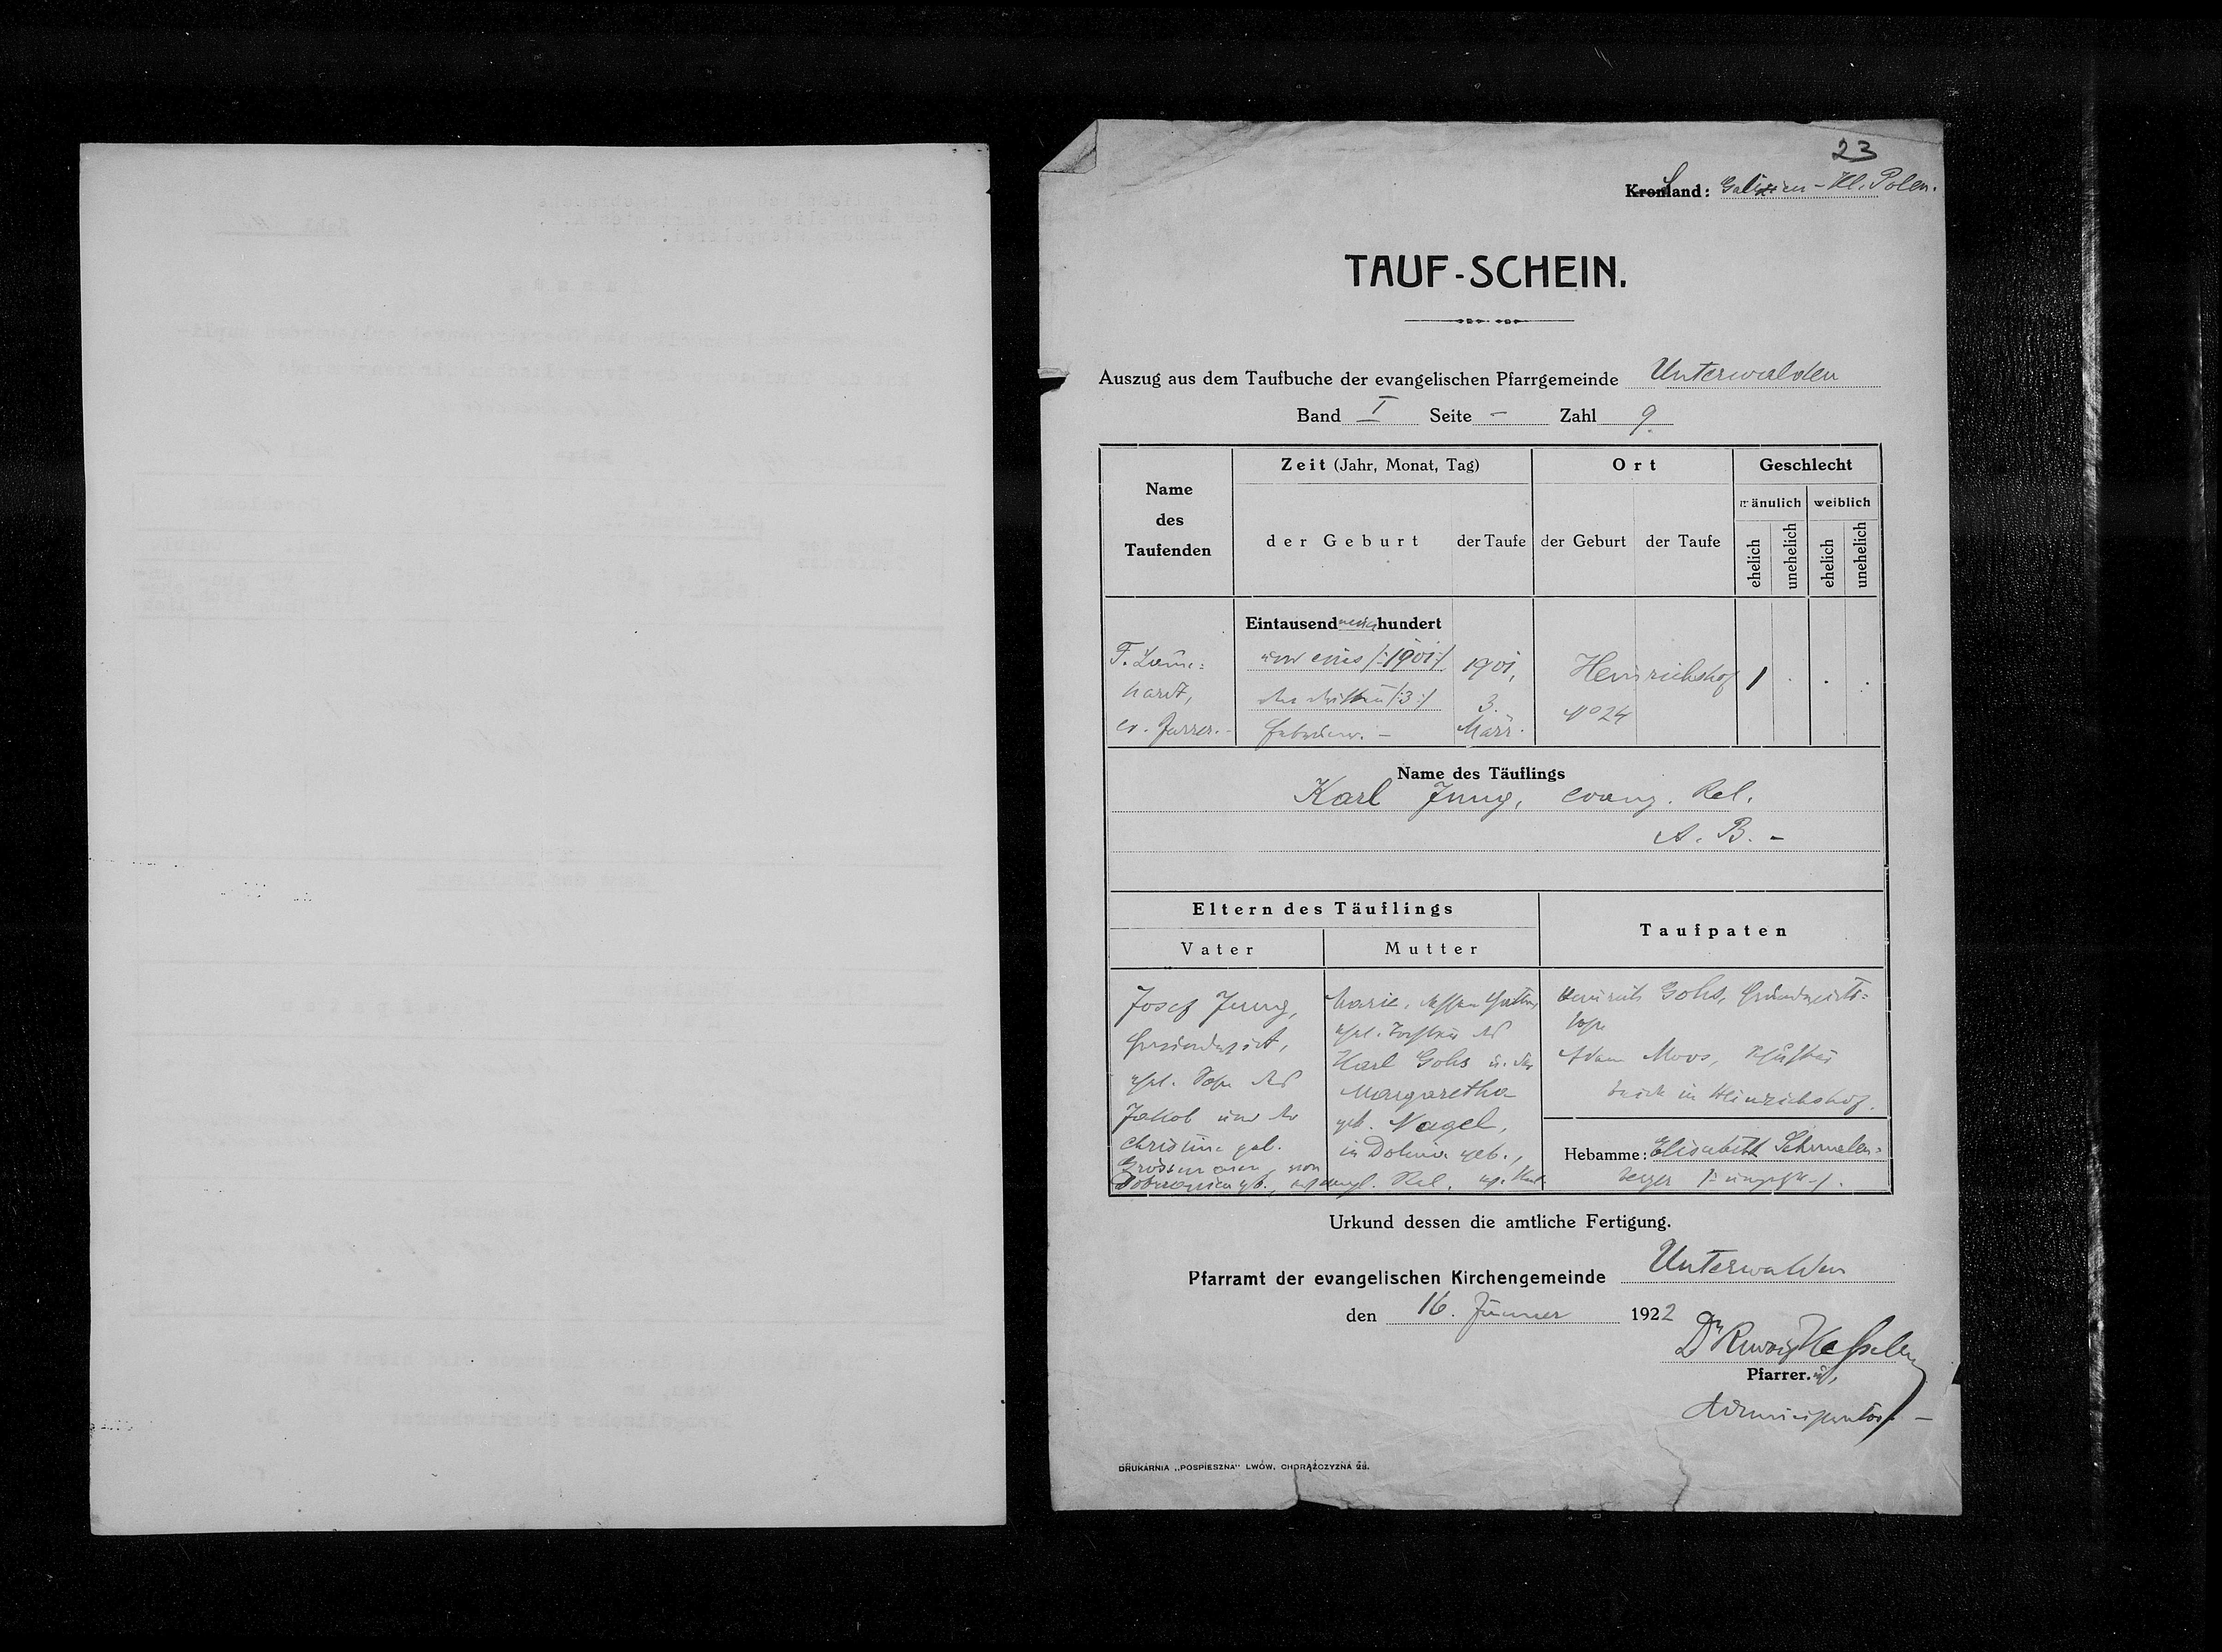 23
Kronland: Galizien - Kl. Polen.
TAUF-SCHEIN.
Auszug aus dem Taufbuche der evangelischen Pfarrgemeinde Unterwalden
Band I Seite - Zahl 9.
Name des Taufenden
Zeit (Jahr, Monat, Tag)
der Geburt
der Taufe
Ort
der Geburt
der Taufe
Geschlecht
mänulich
weiblich
ehelich
unehelich
ehelich
unehelich
Eintausend neun hundert
und eins /:1901:/
den dritten /:3:/
Februar. -
hardt,
ev. Pfarrer. -
1901,
3.
März.
Heinrichshof
No 24
1
Name des Täuflings
Karl Jung, evang. Rel.
A. B. -
Eltern des Täuflings
Vater
Mutter
Taufpaten
Josef Jung,
Grundwirt,
ehel. Sohn des
Jakob und der
Christine geb.
Marie, dessen Gattin,
ehel. Tochter des
Karl Gohs u. der
Margaretha
geb. Nagel,
in Dolina geb.,
Heinrich Gohs, Grundwirts=
sohn
Adam Moos,
beide in Heinrichshof.
Hebamme: Elisabeth Schmalen=
berger /: ungepr. :/.
Urkund dessen die amtliche Fertigung.
Pfarramt der evangelischen Kirchengemeinde Unterwalden
den 16. Jänner 1922
Dr
Pfarrer.
Administrator. -
DRUKARNIA „POSPIESZNA" LWÓW, CHORĄŻCZYZNA 28.